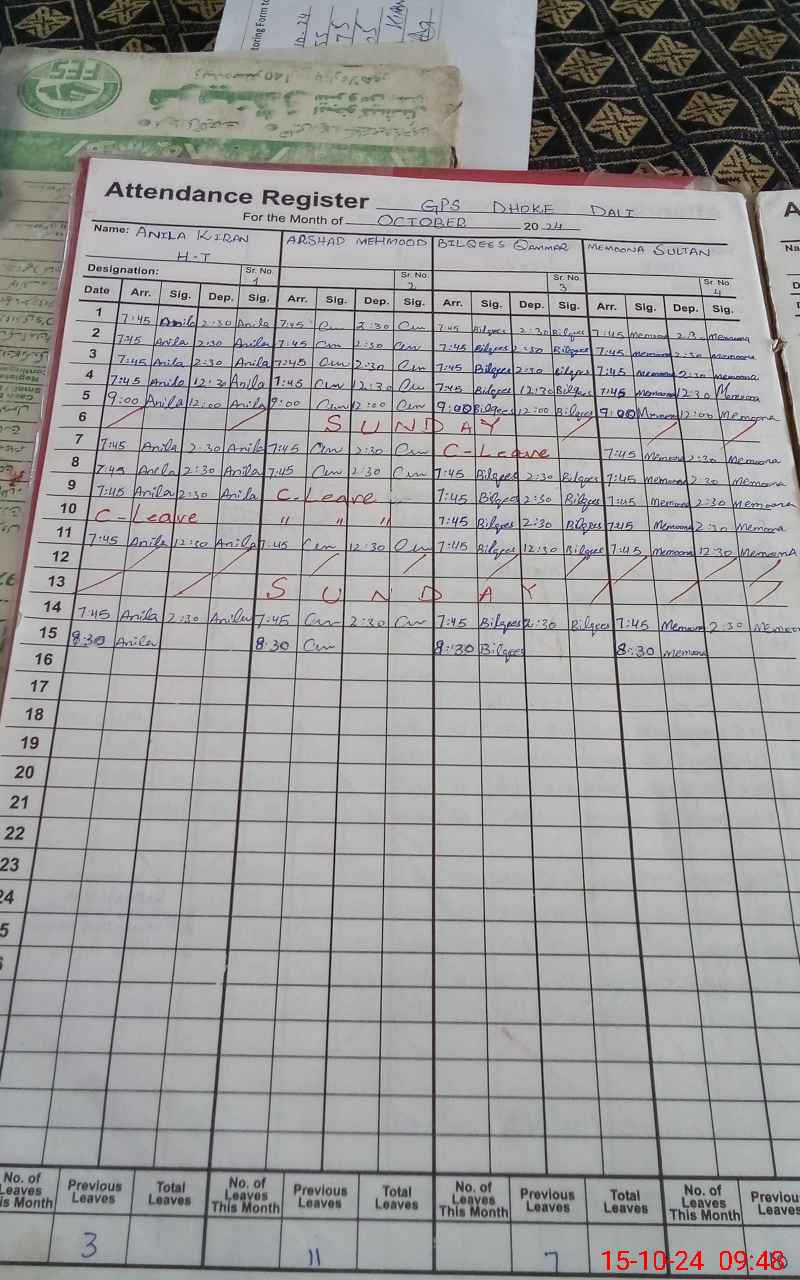 Attendance Register GPS DHOKE DALI
For the Month of OCTOBER 2024
Name: ANILA KIRAN ARSHAD MEHMOOD BILQEES QAMMAR MEMOONA SULTAN
H-T
Designation: Sr. No. 1 Sr. No. 2 Sr. No. 3 Sr. No. 4
Date Arr. Sig. Dep. Sig. Arr. Sig. Dep. Sig. Arr. Sig. Dep. Sig. Arr. Sig. Dep. Sig.
1 7:45 Anila 2:30 Anila 7:45 2:30 7:45 Bilqees 2:30 Bilqees 7:45 Memoona 2:30 Memoona
2 7:45 Anila 2:30 Anila 7:45 2:30 7:45 Bilqees 2:30 Bilqees 7:45 Memoona 2:30 Memoona
3 7:45 Anila 2:30 Anila 7:45 2:30 7:45 Bilqees 2:30 Bilqees 7:45 Memoona 2:30 Memoona
4 7:45 Anila 12:30 Anila 7:45 12:30 7:45 Bilqees 12:30 Bilqees 7:45 Memoona 12:30 Memoona
5 9:00 Anila 12:00 Anila 9:00 12:00 9:00 Bilqees 12:00 Bilqees 9:00 Memoona 12:00 Memoona
6 SUNDAY
7 7:45 Anila 2:30 Anila 7:45 2:30 C-Leave 7:45 Memoona 2:30 Memoona
8 7:45 Anila 2:30 Anila 7:45 2:30 7:45 Bilqees 2:30 Bilqees 7:45 Memoona 2:30 Memoona
9 7:45 Anila 2:30 Anila C-Leave 7:45 Bilqees 2:30 Bilqees 7:45 Memoona 2:30 Memoona
10 C-Leave " " " 7:45 Bilqees 2:30 Bilqees 7:45 Memoona 2:30 Memoona
11 7:45 Anila 12:30 Anila 7:45 12:30 7:45 Bilqees 12:30 Bilqees 7:45 Memoona 12:30 Memoona
12
13 SUNDAY
14 7:45 Anila 2:30 Anila 7:45 2:30 7:45 Bilqees 2:30 Bilqees 7:45 Memoona 2:30 Memoona
15 8:30 Anila 8:30 8:30 Bilqees 8:30 Memoona
16
17
18
19
20
21
22
23
24
5
No. of Leaves This Month Previous Leaves Total Leaves No. of Leaves This Month Previous Leaves Total Leaves No. of Leaves This Month Previous Leaves Total Leaves No. of Leaves This Month Previous Leaves
3 11 7
15-10-24 09:48